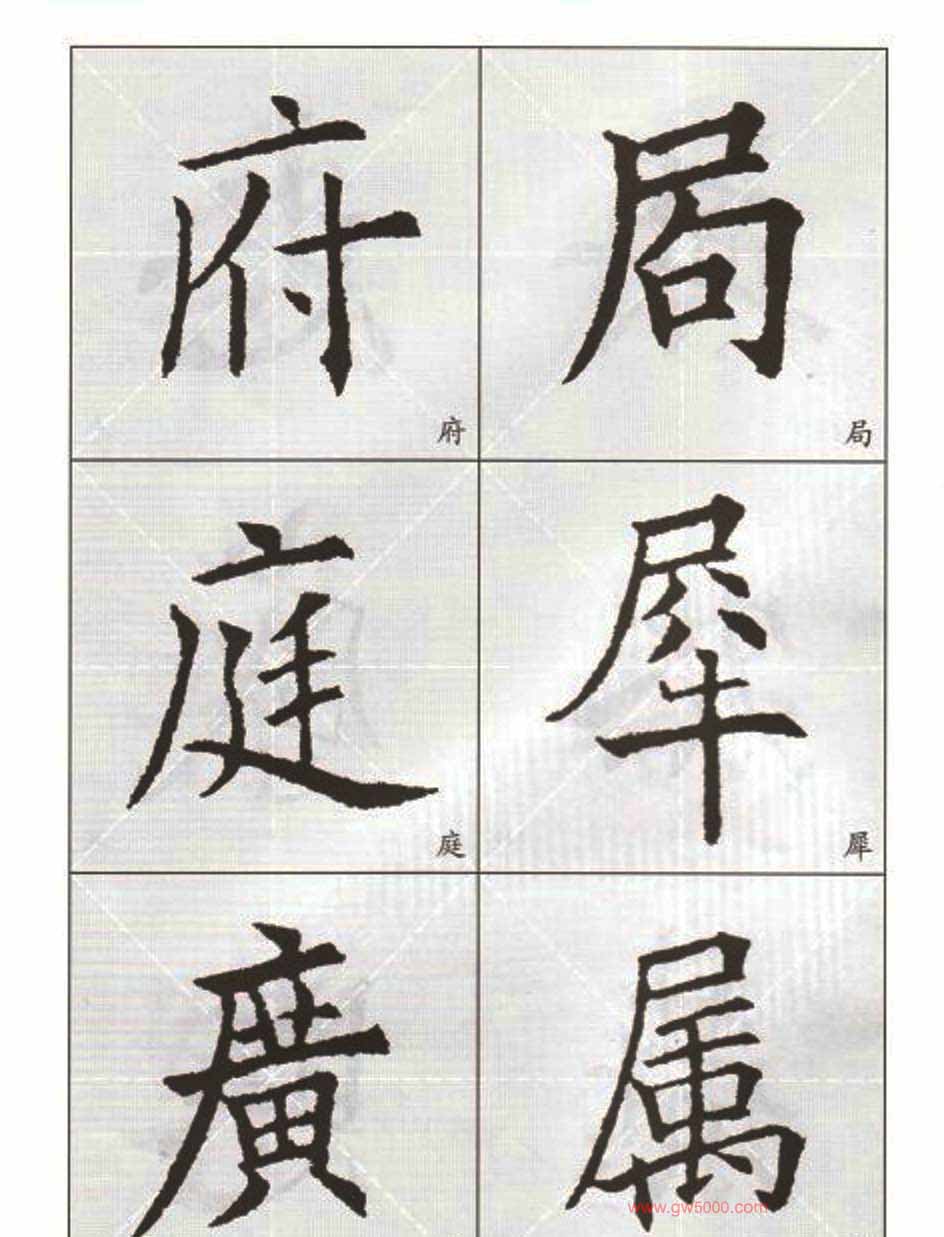 局 府
局 府
犀 庭
犀 庭
属 廣
www.gw5000.com